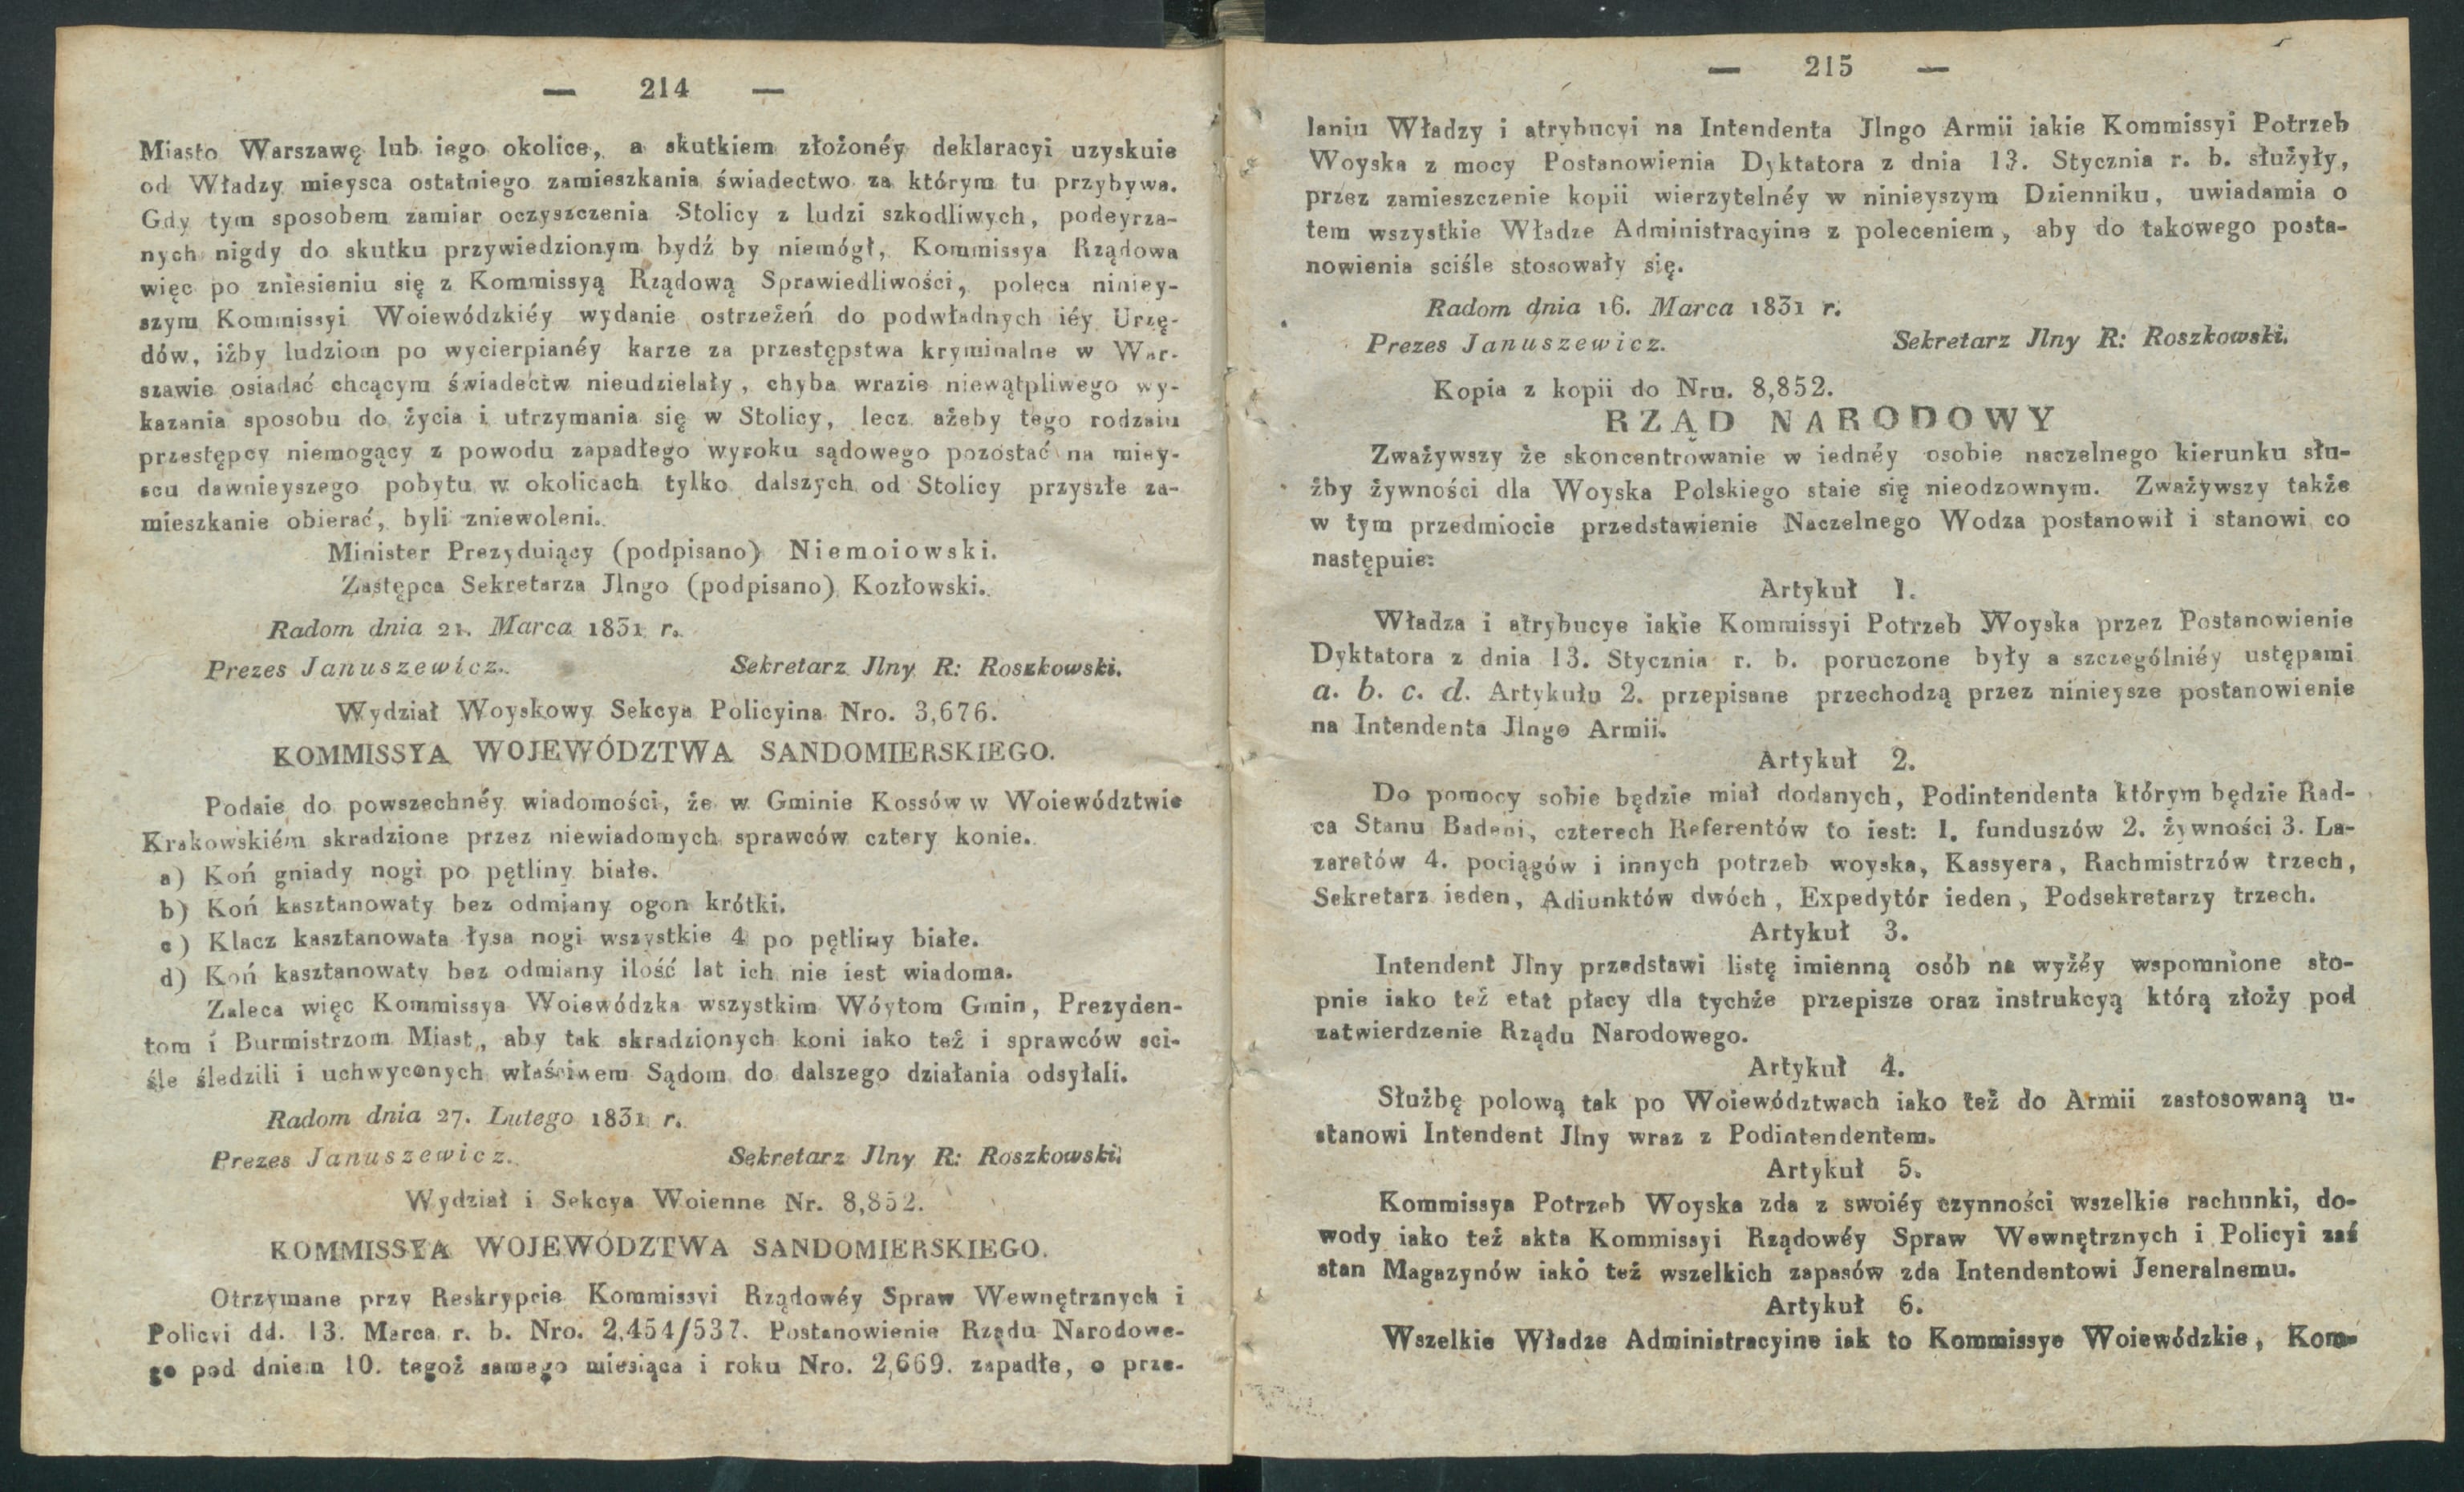 — 214 —
Miasto Warszawę lub iego okolice, a skutkiem złożonéy deklaracyi uzyskuie
od Władzy mieysca ostatniego zamieszkania świadectwo za którym tu przybywa.
Gdy tym sposobem zamiar oczyszczenia Stolicy z ludzi szkodliwych, podeyrza-
nych nigdy do skutku przywiedzionym bydź by niemógł, Kommissya Rządowa
więc po zniesieniu się z Kommissyą Rządową Sprawiedliwości, poleca niniey-
szym Kommissyi Woiewódzkiéy wydanie ostrzeżeń do podwładnych iéy Urzę-
dów, iżby ludziom po wycierpianéy karze za przestępstwa kryminalne w War-
szawie osiadać chcącym świadectw nieudzielały, chyba wrazie niewątpliwego wy-
kazania sposobu do życia i utrzymania się w Stolicy, lecz ażeby tego rodzaiu
przestępcy niemogący z powodu zapadłego wyroku sądowego pozostać na miey-
scu dawnieyszego pobytu w okolicach tylko dalszych od Stolicy przyszłe za-
mieszkanie obierać, byli zniewoleni.
Minister Prezyduiący (podpisano) Niemoiowski.
Zastępca Sekretarza Jlngo (podpisano) Kozłowski.
Radom dnia 21. Marca 1831 r.
Prezes Januszewicz. Sekretarz Jlny R: Roszkowski.
Wydział Woyskowy Sekcya Policyina Nro. 3,676.
KOMMISSYA WOJEWÓDZTWA SANDOMIERSKIEGO.
Podaie do powszechnéy wiadomości, że w Gminie Kossów w Woiewództwie
Krakowskiém skradzione przez niewiadomych sprawców cztery konie.
a) Koń gniady nogi po pętliny białe.
b) Koń kasztanowaty bez odmiany ogon krótki.
c) Klacz kasztanowata łysa nogi wszystkie 4 po pętliny białe.
d) Koń kasztanowaty bez odmiany ilość lat ich nie iest wiadoma.
Zaleca więc Kommissya Woiewódzka wszystkim Wóytom Gmin, Prezyden-
tom i Burmistrzom Miast, aby tak skradzionych koni iako też i sprawców sci-
śle śledzili i uchwyconych właściwem Sądom do dalszego działania odsyłali.
Radom dnia 27. Lutego 1831 r.
Prezes Januszewicz. Sekretarz Jlny R: Roszkowski.
Wydział i Sekcya Woienne Nr. 8,852.
KOMMISSYA WOJEWÓDZTWA SANDOMIERSKIEGO.
Otrzymane przy Reskrypcie Kommissyi Rządowéy Spraw Wewnętrznych i
Policyi dd. 13. Marca r. b. Nro. 2,454/537. Postanowienie Rządu Narodowe-
go pod dniem 10. tegoż samego miesiąca i roku Nro. 2,669. zapadłe, o prze-
— 215 —
laniu Władzy i atrybucyi na Intendenta Jlngo Armii iakie Kommissyi Potrzeb
Woyska z mocy Postanowienia Dyktatora z dnia 13. Stycznia r. b. służyły,
przez zamieszczenie kopii wierzytelnéy w ninieyszym Dzienniku, uwiadamia o
tem wszystkie Władze Administracyine z poleceniem, aby do takowego posta-
nowienia sciśle stosowały się.
Radom dnia 16. Marca 1831 r.
Prezes Januszewicz. Sekretarz Jlny R: Roszkowski.
Kopia z kopii do Nru. 8,852.
RZĄD NARODOWY
Zważywszy że skoncentrowanie w iednéy osobie naczelnego kierunku słu-
żby żywności dla Woyska Polskiego staie się nieodzownym. Zważywszy także
w tym przedmiocie przedstawienie Naczelnego Wodza postanowił i stanowi co
następuie:
Artykuł 1.
Władza i atrybucye iakie Kommissyi Potrzeb Woyska przez Postanowienie
Dyktatora z dnia 13. Stycznia r. b. poruczone były a szczególniéy ustępami
a. b. c. d. Artykułu 2. przepisane przechodzą przez ninieysze postanowienie
na Intendenta Jlngo Armii.
Artykuł 2.
Do pomocy sobie będzie miał dodanych, Podintendenta którym będzie Rad-
ca Stanu Badeni, czterech Referentów to iest: 1. funduszów 2. żywności 3. La-
zaretów 4. pociągów i innych potrzeb woyska, Kassyera, Rachmistrzów trzech,
Sekretarz ieden, Adiunktów dwóch, Expedytór ieden, Podsekretarzy trzech.
Artykuł 3.
Intendent Jlny przedstawi listę imienną osób na wyżéy wspomnione sto-
pnie iako też etat płacy dla tychże przepisze oraz instrukcyą którą złoży pod
zatwierdzenie Rządu Narodowego.
Artykuł 4.
Służbę polową tak po Woiewództwach iako też do Armii zastosowaną u-
stanowi Intendent Jlny wraz z Podintendentem.
Artykuł 5.
Kommissya Potrzeb Woyska zda z swoiéy czynności wszelkie rachunki, do-
wody iako też akta Kommissyi Rządowéy Spraw Wewnętrznych i Policyi zaś
stan Magazynów iako też wszelkich zapasów zda Intendentowi Jeneralnemu.
Artykuł 6.
Wszelkie Władze Administracyine iak to Kommissye Woiewódzkie, Kom-